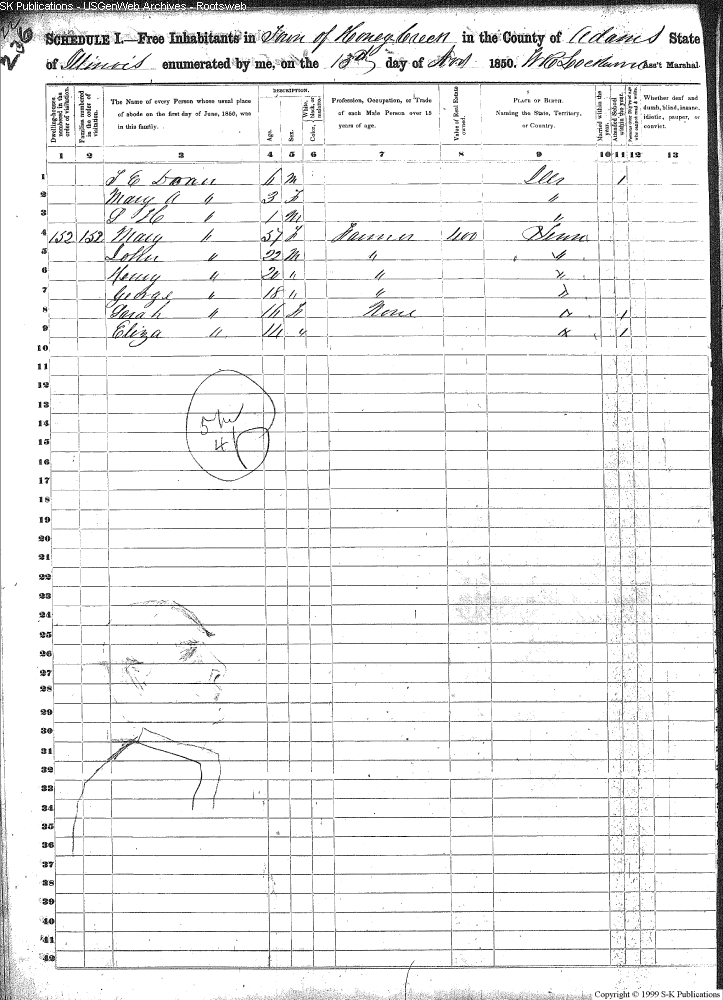 SK Publications - USGenWeb Archives - Rootsweb
236
SCHEDULE I.—Free Inhabitants in Town of Honey Creek in the County of Adams State
of Illinois enumerated by me, on the 13th day of Nov 1850. Ass't Marshal
Dwelling-houses numbered in the order of visitation.
Families numbered in the order of visitation.
The Name of every Person whose usual place of abode on the first day of June, 1850, was in this family.
DESCRIPTION.
Age.
Sex.
Color, White, black, or mulatto.
Profession, Occupation, or Trade of each Male Person over 15 years of age.
Value of Real Estate owned.
PLACE OF BIRTH. Naming the State, Territory, or Country.
Married within the year.
Attended School within the year.
Persons over 20 y'rs of age who cannot read & write.
Whether deaf and dumb, blind, insane, idiotic, pauper, or convict.
1 2 3 4 5 6 7 8 9 10 11 12 13
1 M Ills 1
2 Mary A " 3 F "
3 " 1 M "
4 152 152 Mary " 57 F Farmer 400
5 " 22 M " "
6 Henry " 20 " " "
7 George " 18 " " "
8 Sarah " 16 F None " 1
9 Eliza " 14 " " 1
10
11
12
13
14
15
16
17
18
19
20
21
22
23
24
25
26
27
28
29
30
31
32
33
34
35
36
37
38
39
40
41
42
Copyright © 1999 S-K Publications